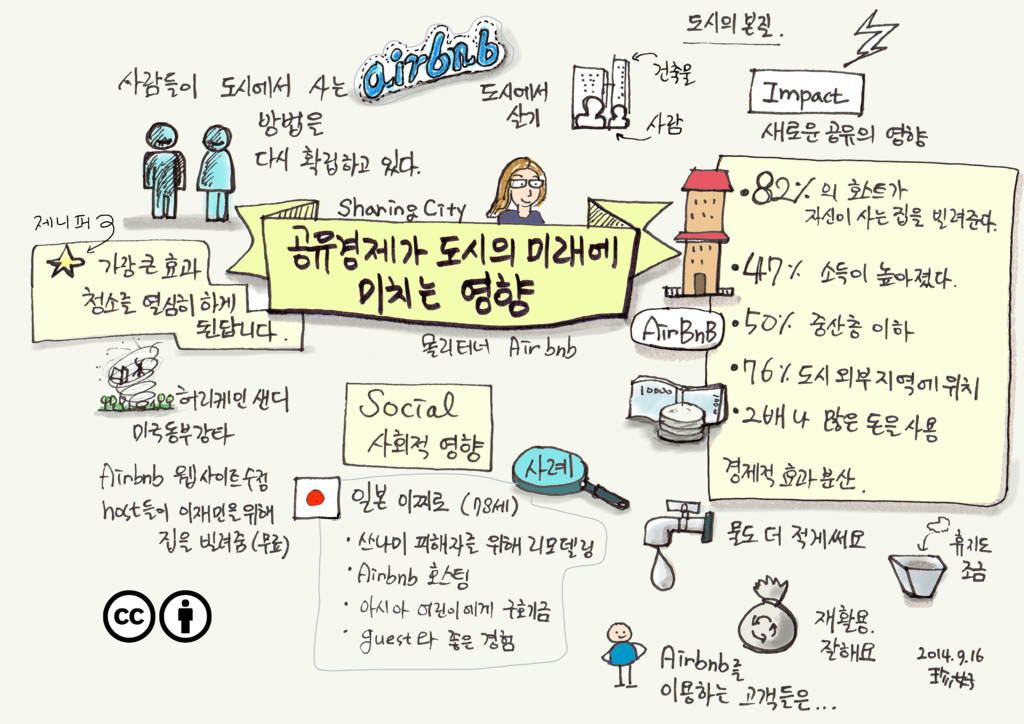 airbnb
사람들이 도시에서 사는
방법을
다시 확립하고 있다.
도시의 본질.
도시에서
살기
건축물
사람
Impact
새로운 공유의 영향
Sharing City
공유경제가 도시의 미래에
미치는 영향
몰리터너 Airbnb
제니퍼 曰
가장 큰 효과
청소를 열심히 하게
된답니다.
허리케인 샌디
미국동부강타
Airbnb 웹사이트 수정
host들이 이재민을 위해
집을 빌려줌 (무료)
AirBnB
10000
• 82%의 호스트가
자신이 사는 집을 빌려준다.
• 47% 소득이 높아졌다.
• 50% 중산층 이하
• 76% 도시 외부지역에 위치
• 2배나 많은 돈을 사용
경제적 효과 분산.
Social
사회적 영향
사례
일본 이찌로 (78세)
• 쓰나미 피해자를 위해 리모델링
• Airbnb 호스팅
• 아시아 어린이에게 구호기금
• guest와 좋은 경험
물도 더 적게써요
휴지도
조금
재활용.
잘해요
Airbnb를
이용하는 고객들은...
cc
2014.9.16